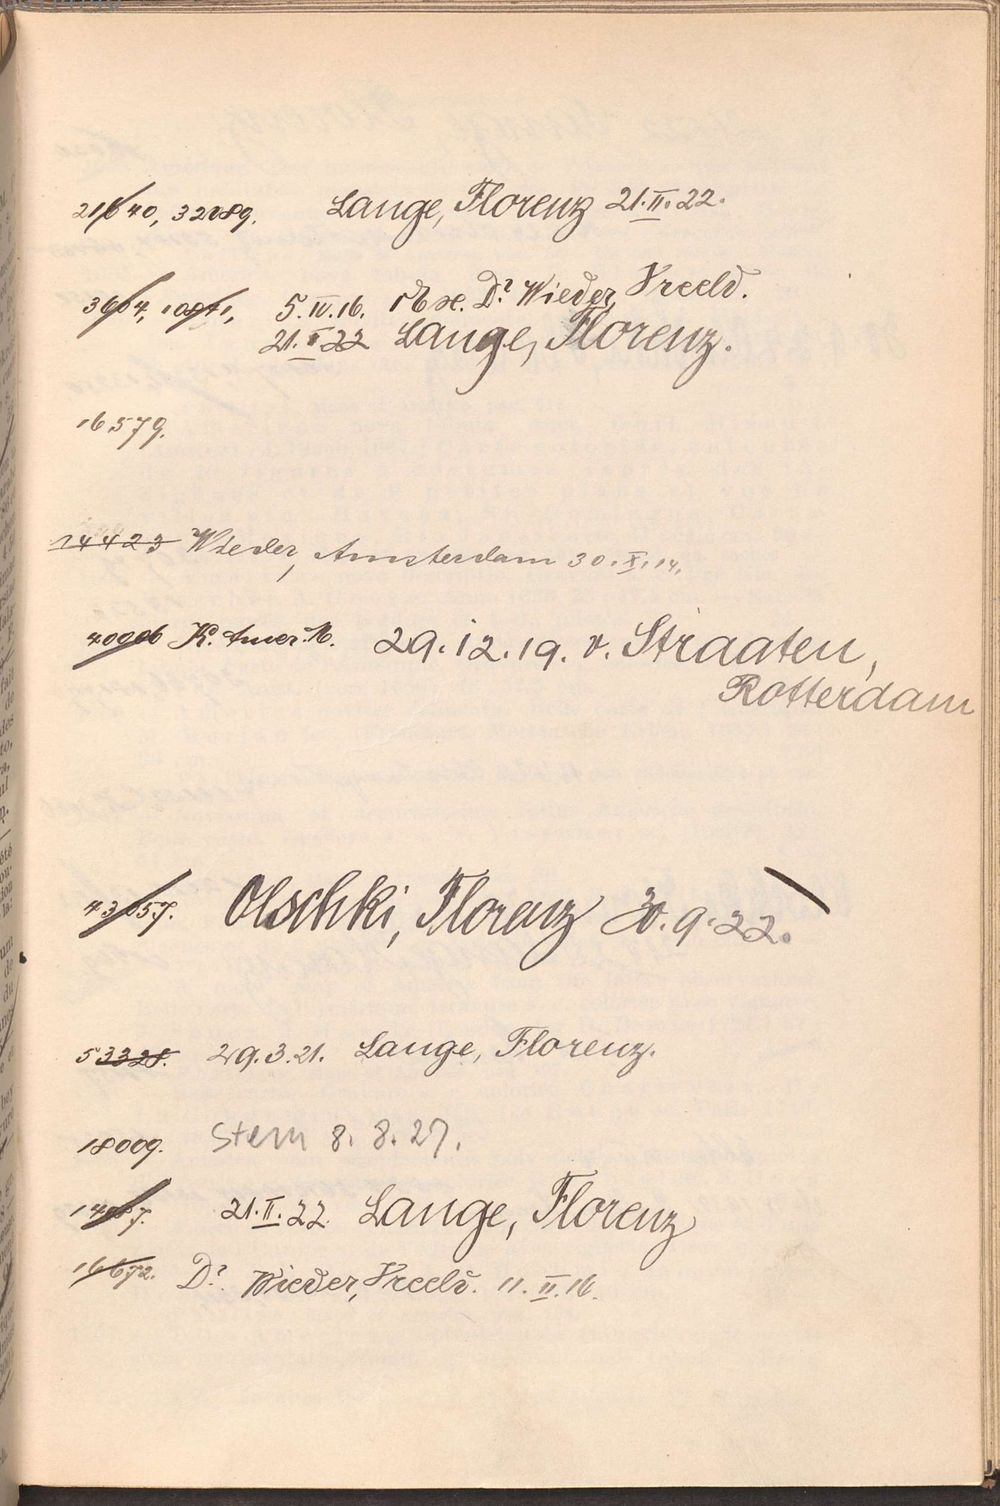 21640, 32289. Lange, Florenz 21.II.22.
3604, 10871, 5. IV. 16. 1 Ex. Dr Wieder, Vreeld.
21. II 22 Lange, Florenz.
16579.
14423 Wieder, Amsterdam 30. X. 14.
40006 K. Amer. M. 29.12.19. v. Straaten,
Rotterdam
43057. Olschki, Florenz 30.9.22.
53328. 29.3.21. Lange, Florenz.
18009. Stern 8. 8. 27.
21.II.22 Lange, Florenz
16672. Dr. Wieder, Vreeld. 11. II. 16.